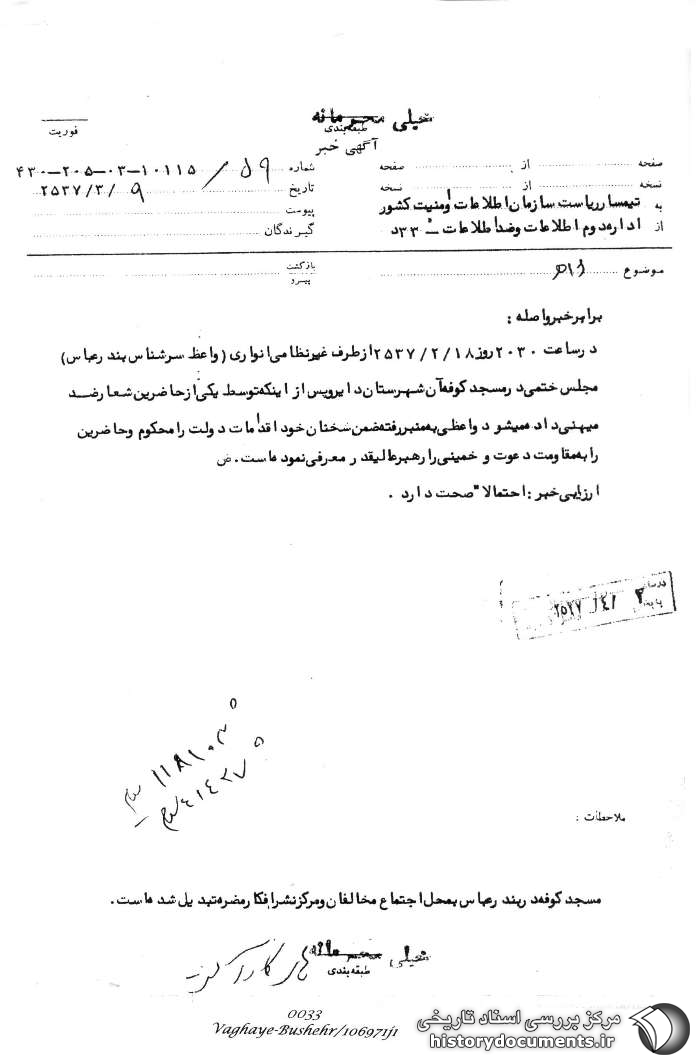 خیلی محرمانه
طبقه‌بندی
آگهی خبر
فوریت
صفحه از صفحه شماره ۴۳۰-۲۰۵-۰۳-۱۰۱۱۵ / ۵۹
نسخه از نسخه تاریخ ۲۵۳۷/۳/۹
به تیمسار ریاست سازمان اطلاعات و امنیت کشور پیوست
از اداره دوم اطلاعات و ضد اطلاعات - ۳۳ د گیرندگان
موضوع بازگشت
پیرو
برابر خبر واصله :
در ساعت ۲۰۳۰ روز ۲۵۳۷/۲/۱۸ از طرف غیرنظامی انواری (واعظ سرشناس بندرعباس)
مجلس ختمی در مسجد کوفه آن شهرستان دایر و پس از اینکه توسط یکی از حاضرین شعار ضد
میهنی داده میشود واعظی به منبر رفته ضمن سخنان خود اقدامات دولت را محکوم و حاضرین
را به مقاومت دعوت و خمینی را رهبر عالیقدر معرفی نموده است . ض
ارزیابی خبر : احتمالا" صحت دارد .
۲۵۳۷
۱۱۸۱۰۳
۴۱۴۳۷
ملاحظات :
مسجد کوفه در بندرعباس به محل اجتماع مخالفان و مرکز نشر افکار مضره تبدیل شده است .
خیلی محرمانه
طبقه‌بندی
0033
Vaghaye-Bushehr/106971j1
مرکز بررسی اسناد تاریخی
historydocuments.ir